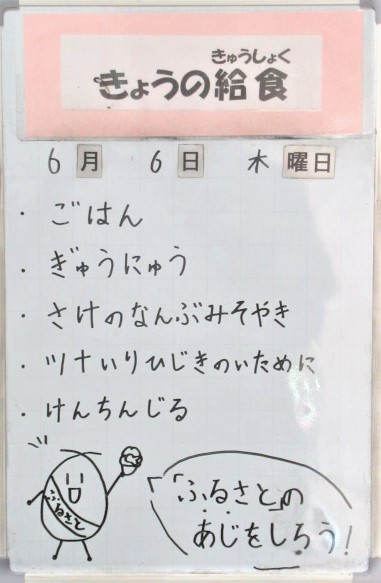 きゅうしょく
きょうの給食
6月 6日 木曜日
・ごはん
・ぎゅうにゅう
・さけのなんぶみそやき
・ツナいりひじきのいために
・けんちんじる
ふるさと
「ふるさと」の
あじをしろう!